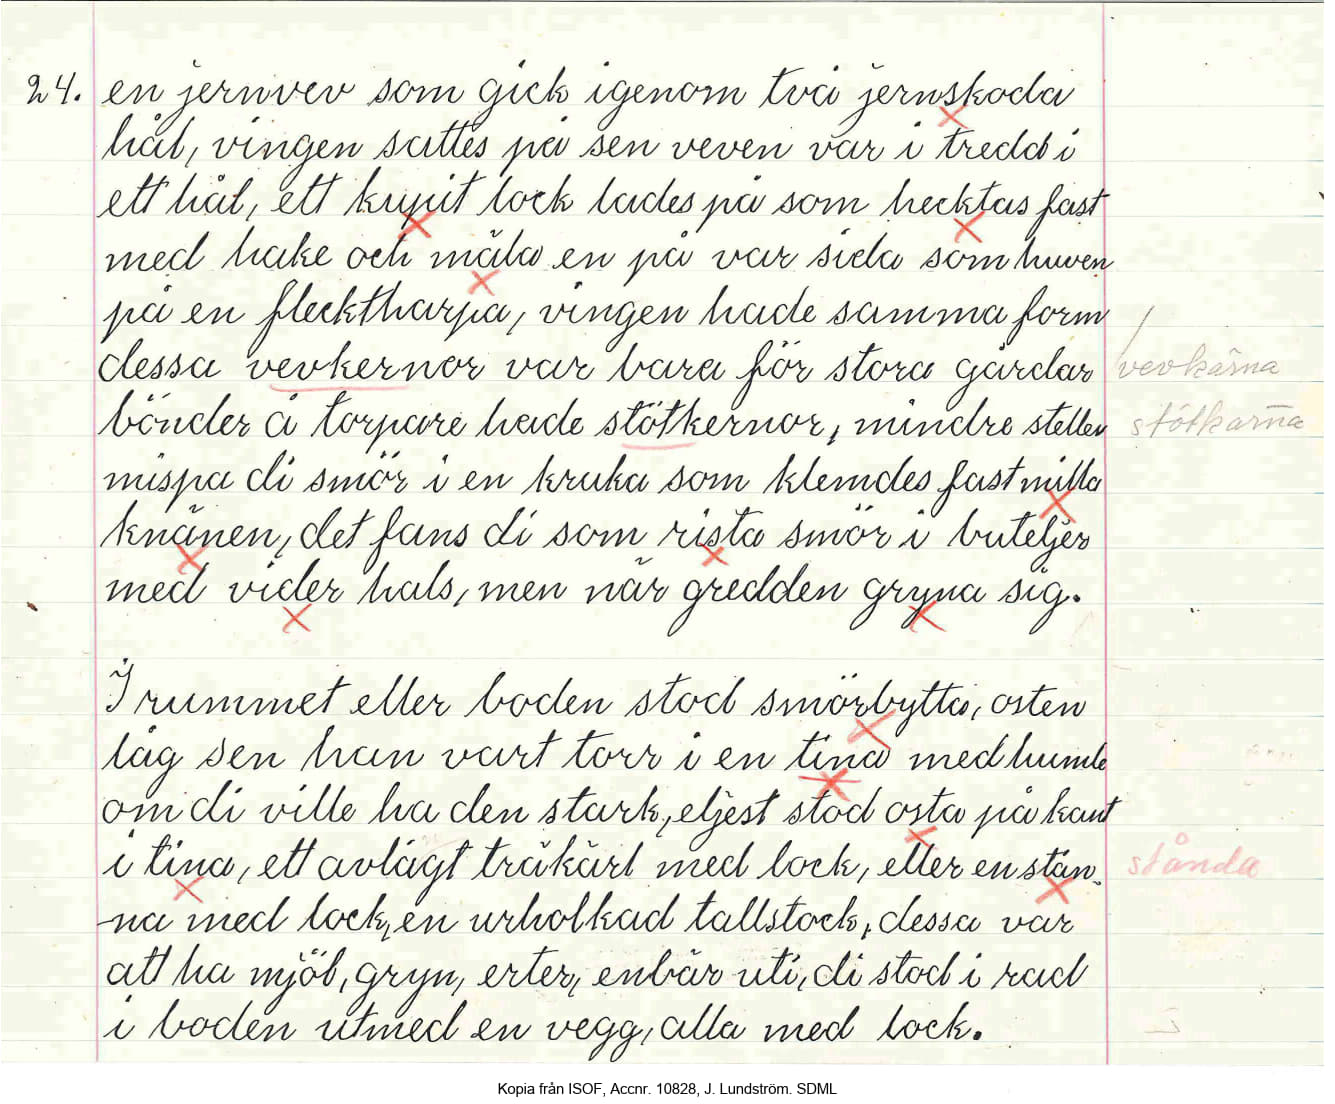 24. en jernvev som gick igenom två jernskoda
hål, vingen sattes på sen veven var i tredd i
ett hål, ett krypit lock lades på som hecktas fast
med hake och mäla en på var sida som huven
på en flecktharpa, vingen hade samma form
dessa vevkernor var bara för stora gårdar
vevkärna
bönder å torpare hade stötkernor, mindre stellen
stötkärna
mispa di smör i en kruka som klemdes fast milla
knänen, det fans di som rista smör i buteljer
med vider hals, men när gredden gryna sig.
I rummet eller boden stod smörbytta, osten
låg sen han vart torr i en tina med humle
om di ville ha den stark, eljest stod osta på kant
i tina, ett avlågt träkärl med lock, eller en stån
stånda
na med lock, en urholkad tallstock, dessa var
att ha mjöl, gryn, erter, enbär uti, di stod i rad
i boden utmed en vegg, alla med lock.
Kopia från ISOF, Accnr. 10828, J. Lundström. SDML